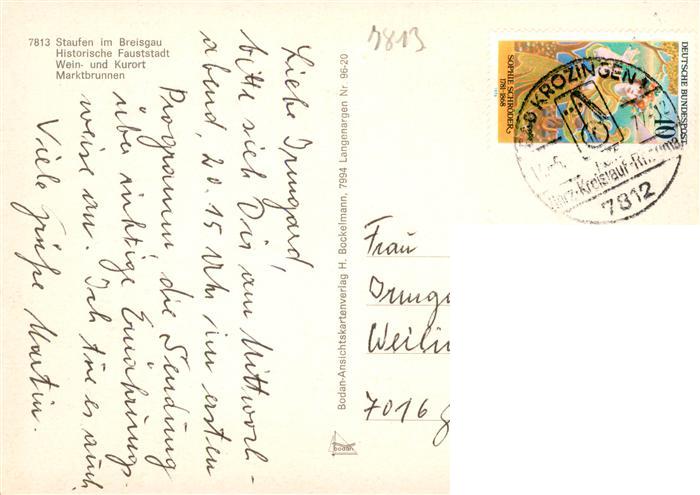 7813 Staufen im Breisgau
Historische Fauststadt
Wein- und Kurort
Marktbrunnen
Liebe Irmgard,
bitte sieh Dir am Mittwoch-
abend, 20.15 Uhr im ersten
Programm die Sendung
über richtige Ernährungs-
weise an. Ich tue es auch
Viele Grüße Martin.
Bodan-Ansichtskartenverlag H. Bockelmann, 7994 Langenargen Nr. 96-20
bodan
7813
SOPHIE SCHRÖDER
1781-1868
DEUTSCHE BUNDESPOST
KROZINGEN
Herz-Kreislauf-Rheuma
7812
Frau
Irmga
Weilin
7016